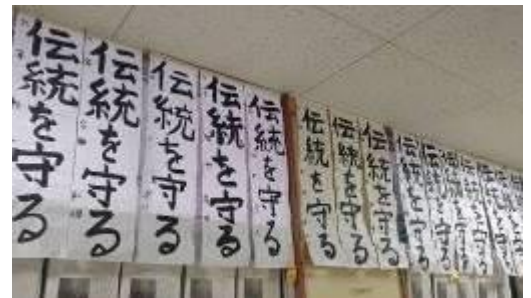 伝統を守る
伝統を守る
伝統を守る
伝統を守る
伝統を守る
伝統を守る
伝統を守る
伝統を守る
伝統を守る
伝統を守る
伝統を守る
伝統を守る
伝統を守る